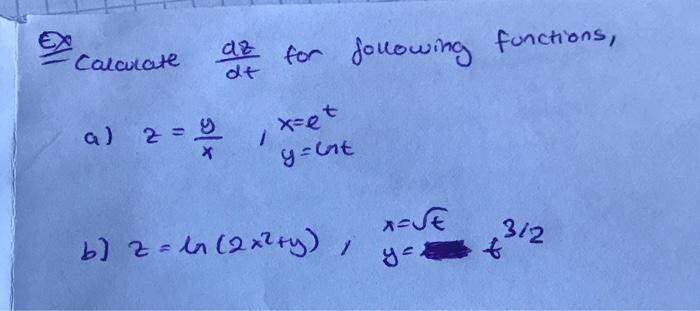 Ex
Calculate dz/dt for following functions,
a) z = y/x , x=e^t
y=lnt
b) z = ln(2x²+y) , x=√t
y= t^3/2